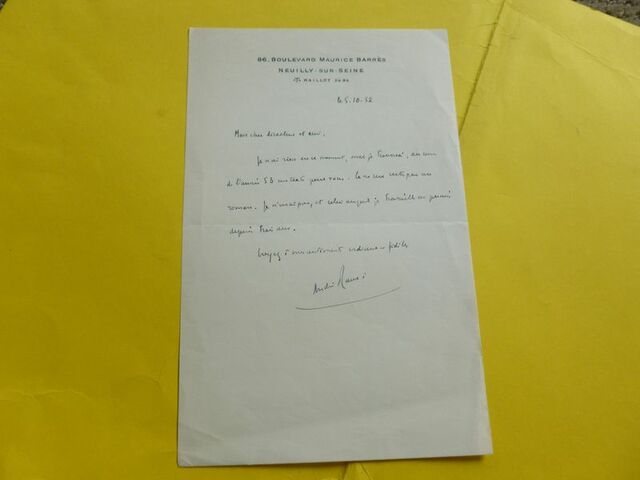 86, BOULEVARD MAURICE BARRÈS
NEUILLY-SUR-SEINE
MAILLOT
le 5.10.52
Mon cher directeur et ami,
Je n'ai rien en ce moment, mais je trouverai, au cours
de l'année 53 un texte pour vous. Ce ne sera pas un
roman. Je n'en ai pas, et celui auquel je travaille en
depuis trois ans.
Croyez à mes sentiments cordiaux et fidèles
André Maurois